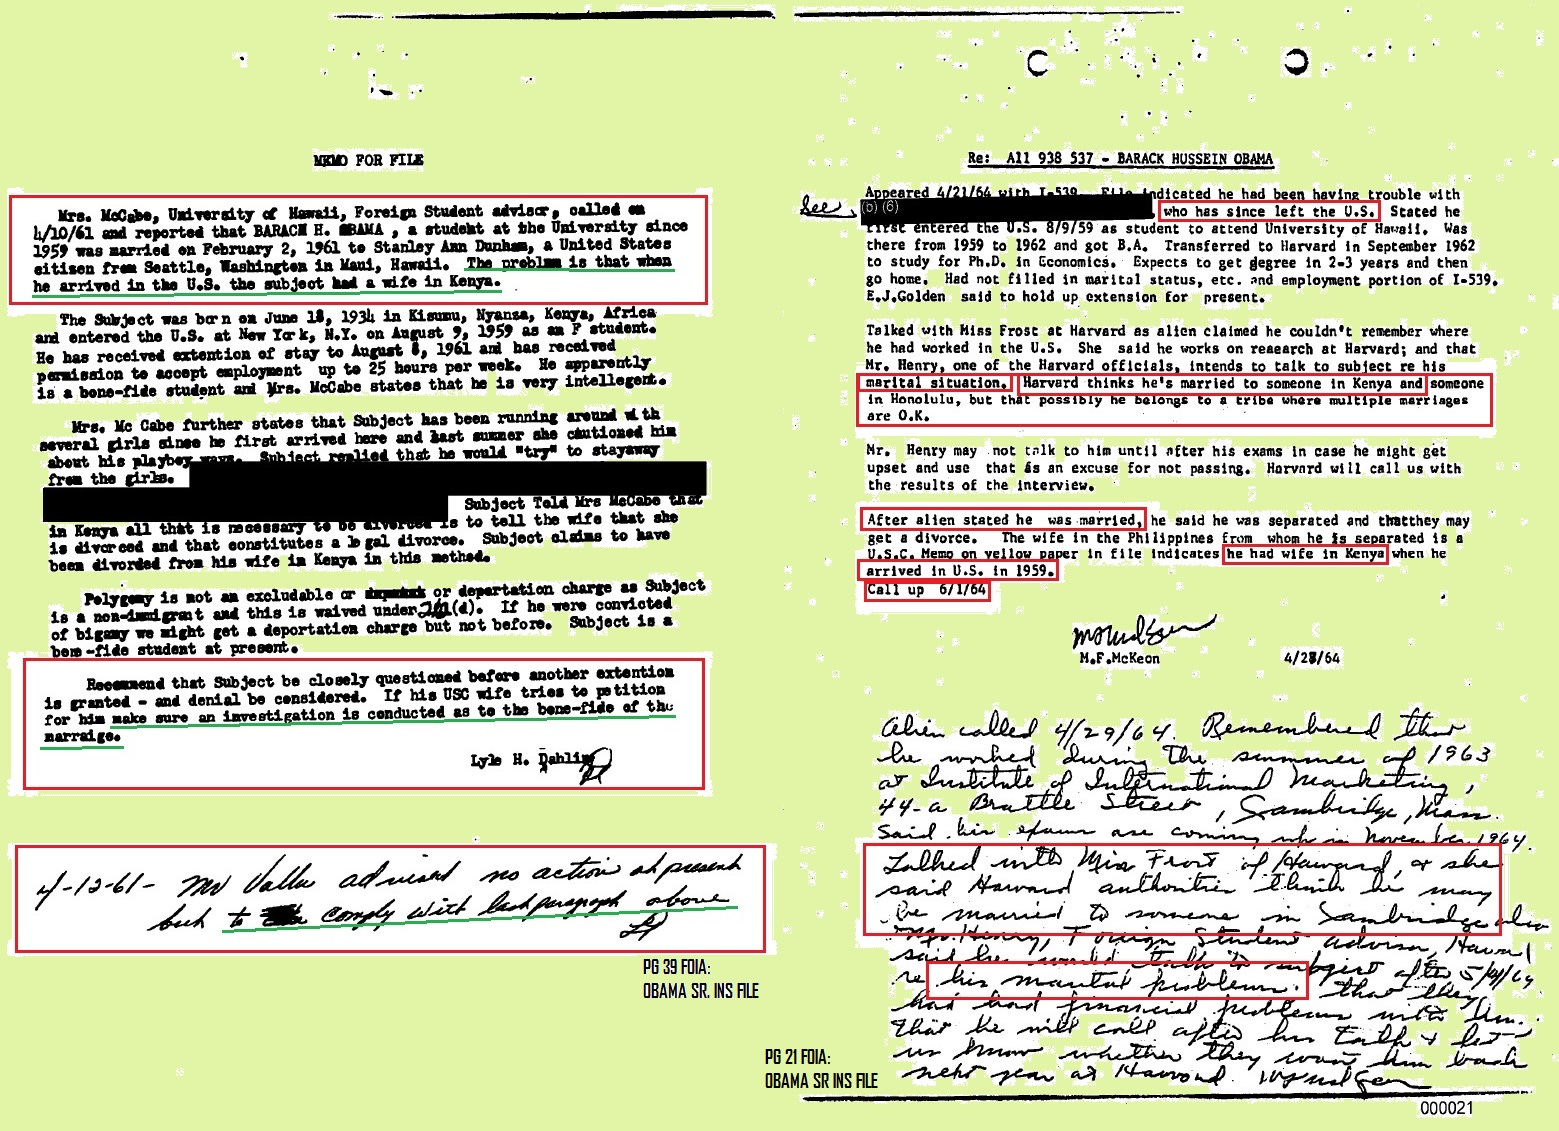 MEMO FOR FILE
Mrs. McCabe, University of Hawaii, Foreign Student advisor, called on
4/10/61 and reported that BARACK H. OBAMA , a student at the University since
1959 was married on February 2, 1961 to Stanley Ann Dunham, a United States
citisen from Seattle, Washington in Maui, Hawaii. The problem is that when
he arrived in the U.S. the subject had a wife in Kenya.
The Subject was born on June 18, 1934 in Kisumu, Nyansa, Kenya, Africa
and entered the U.S. at New York, N.Y. on August 9, 1959 as an F student.
He has received extention of stay to August 8, 1961 and has received
permission to accept employment up to 25 hours per week. He apparently
is a bone-fide student and Mrs. McCabe states that he is very intellegent.
Mrs. Mc Cabe further states that Subject has been running around with
several girls since he first arrived here and last summer she cautioned him
about his playboy ways. Subject replied that he would "try" to stayaway
from the girls.
Subject Told Mrs McCabe that
in Kenya all that is necessary to be divorced is to tell the wife that she
is divorced and that constitutes a legal divorce. Subject claims to have
been divorded from his wife in Kenya in this method.
Polygamy is not an excludable or or deportation charge as Subject
is a non-immigrant and this is waived under (d). If he were convicted
of bigamy we might get a deportation charge but not before. Subject is a
bone-fide student at present.
Recommend that Subject be closely questioned before another extention
is granted - and denial be considered. If his USC wife tries to petition
for him make sure an investigation is conducted as to the bone-fide of the
marraige.
Lyle H. Dahlin
4-12-61- Mr advised no action at present
but to comply with last paragraph above
PG 39 FOIA:
OBAMA SR. INS FILE
Re: A11 938 537 - BARACK HUSSEIN OBAMA
Appeared 4/21/64 with I-539. File indicated he had been having trouble with
See (b) (6) who has since left the U.S. Stated he
first entered the U.S. 8/9/59 as student to attend University of Hawaii. Was
there from 1959 to 1962 and got B.A. Transferred to Harvard in September 1962
to study for Ph.D. in Economics. Expects to get degree in 2-3 years and then
go home. Had not filled in marital status, etc. and employment portion of I-539.
E.J.Golden said to hold up extension for present.
Talked with Miss Frost at Harvard as alien claimed he couldn't remember where
he had worked in the U.S. She said he works on reaearch at Harvard; and that
Mr. Henry, one of the Harvard officials, intends to talk to subject re his
marital situation. Harvard thinks he's married to someone in Kenya and someone
in Honolulu, but that possibly he belongs to a tribe where multiple marriages
are O.K.
Mr. Henry may not talk to him until after his exams in case he might get
upset and use that as an excuse for not passing. Harvard will call us with
the results of the interview.
After alien stated he was married, he said he was separated and thatthey may
get a divorce. The wife in the Philippines from whom he is separated is a
U.S.C. Memo on yellow paper in file indicates he had wife in Kenya when he
arrived in U.S. in 1959.
Call up 6/1/64
M.F.McKeon 4/28/64
Alien called 4/29/64. Remembered that
he worked during the summer of 1963
at Institute of International Marketing,
44-a Brattle Street, Cambridge, Mass.
Said his exams are coming up in November 1964.
Talked with Miss Frost of Harvard, & she
said Harvard authorities think he may
be married to someone in Cambridge also
Mr. Henry, Foreign Student advisor, Harvard
said he would talk to subject after 5/4/64
re his marital problems. That they
had had financial problems with him.
That he will call after his talk & let
us know whether they want him back
next year at Harvard.
PG 21 FOIA:
OBAMA SR INS FILE
000021